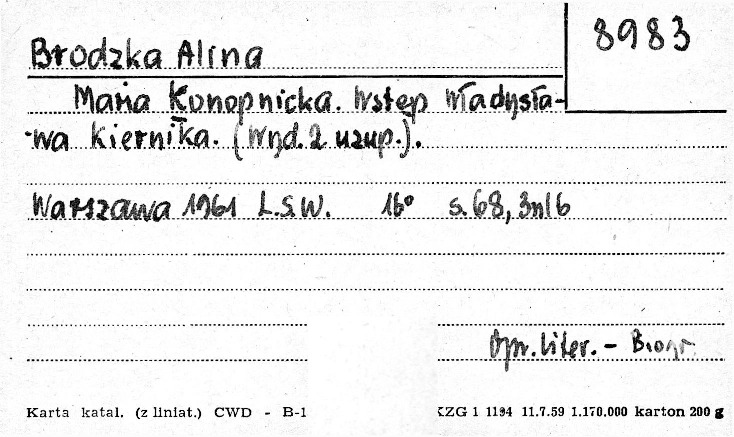 8983
Brodzka Alina
Maria Konopnicka. Wstęp Władysła-
-wa Kiernika. (Wyd. 2 uzup.).
Warszawa 1961 L.S.W. 16° s. 68, 3nlb
Opr. liter. - Biogr.
Karta katal. (z liniat.) CWD - B-1
KZG 1 1194 11.7.59 1.170.000 karton 200 g